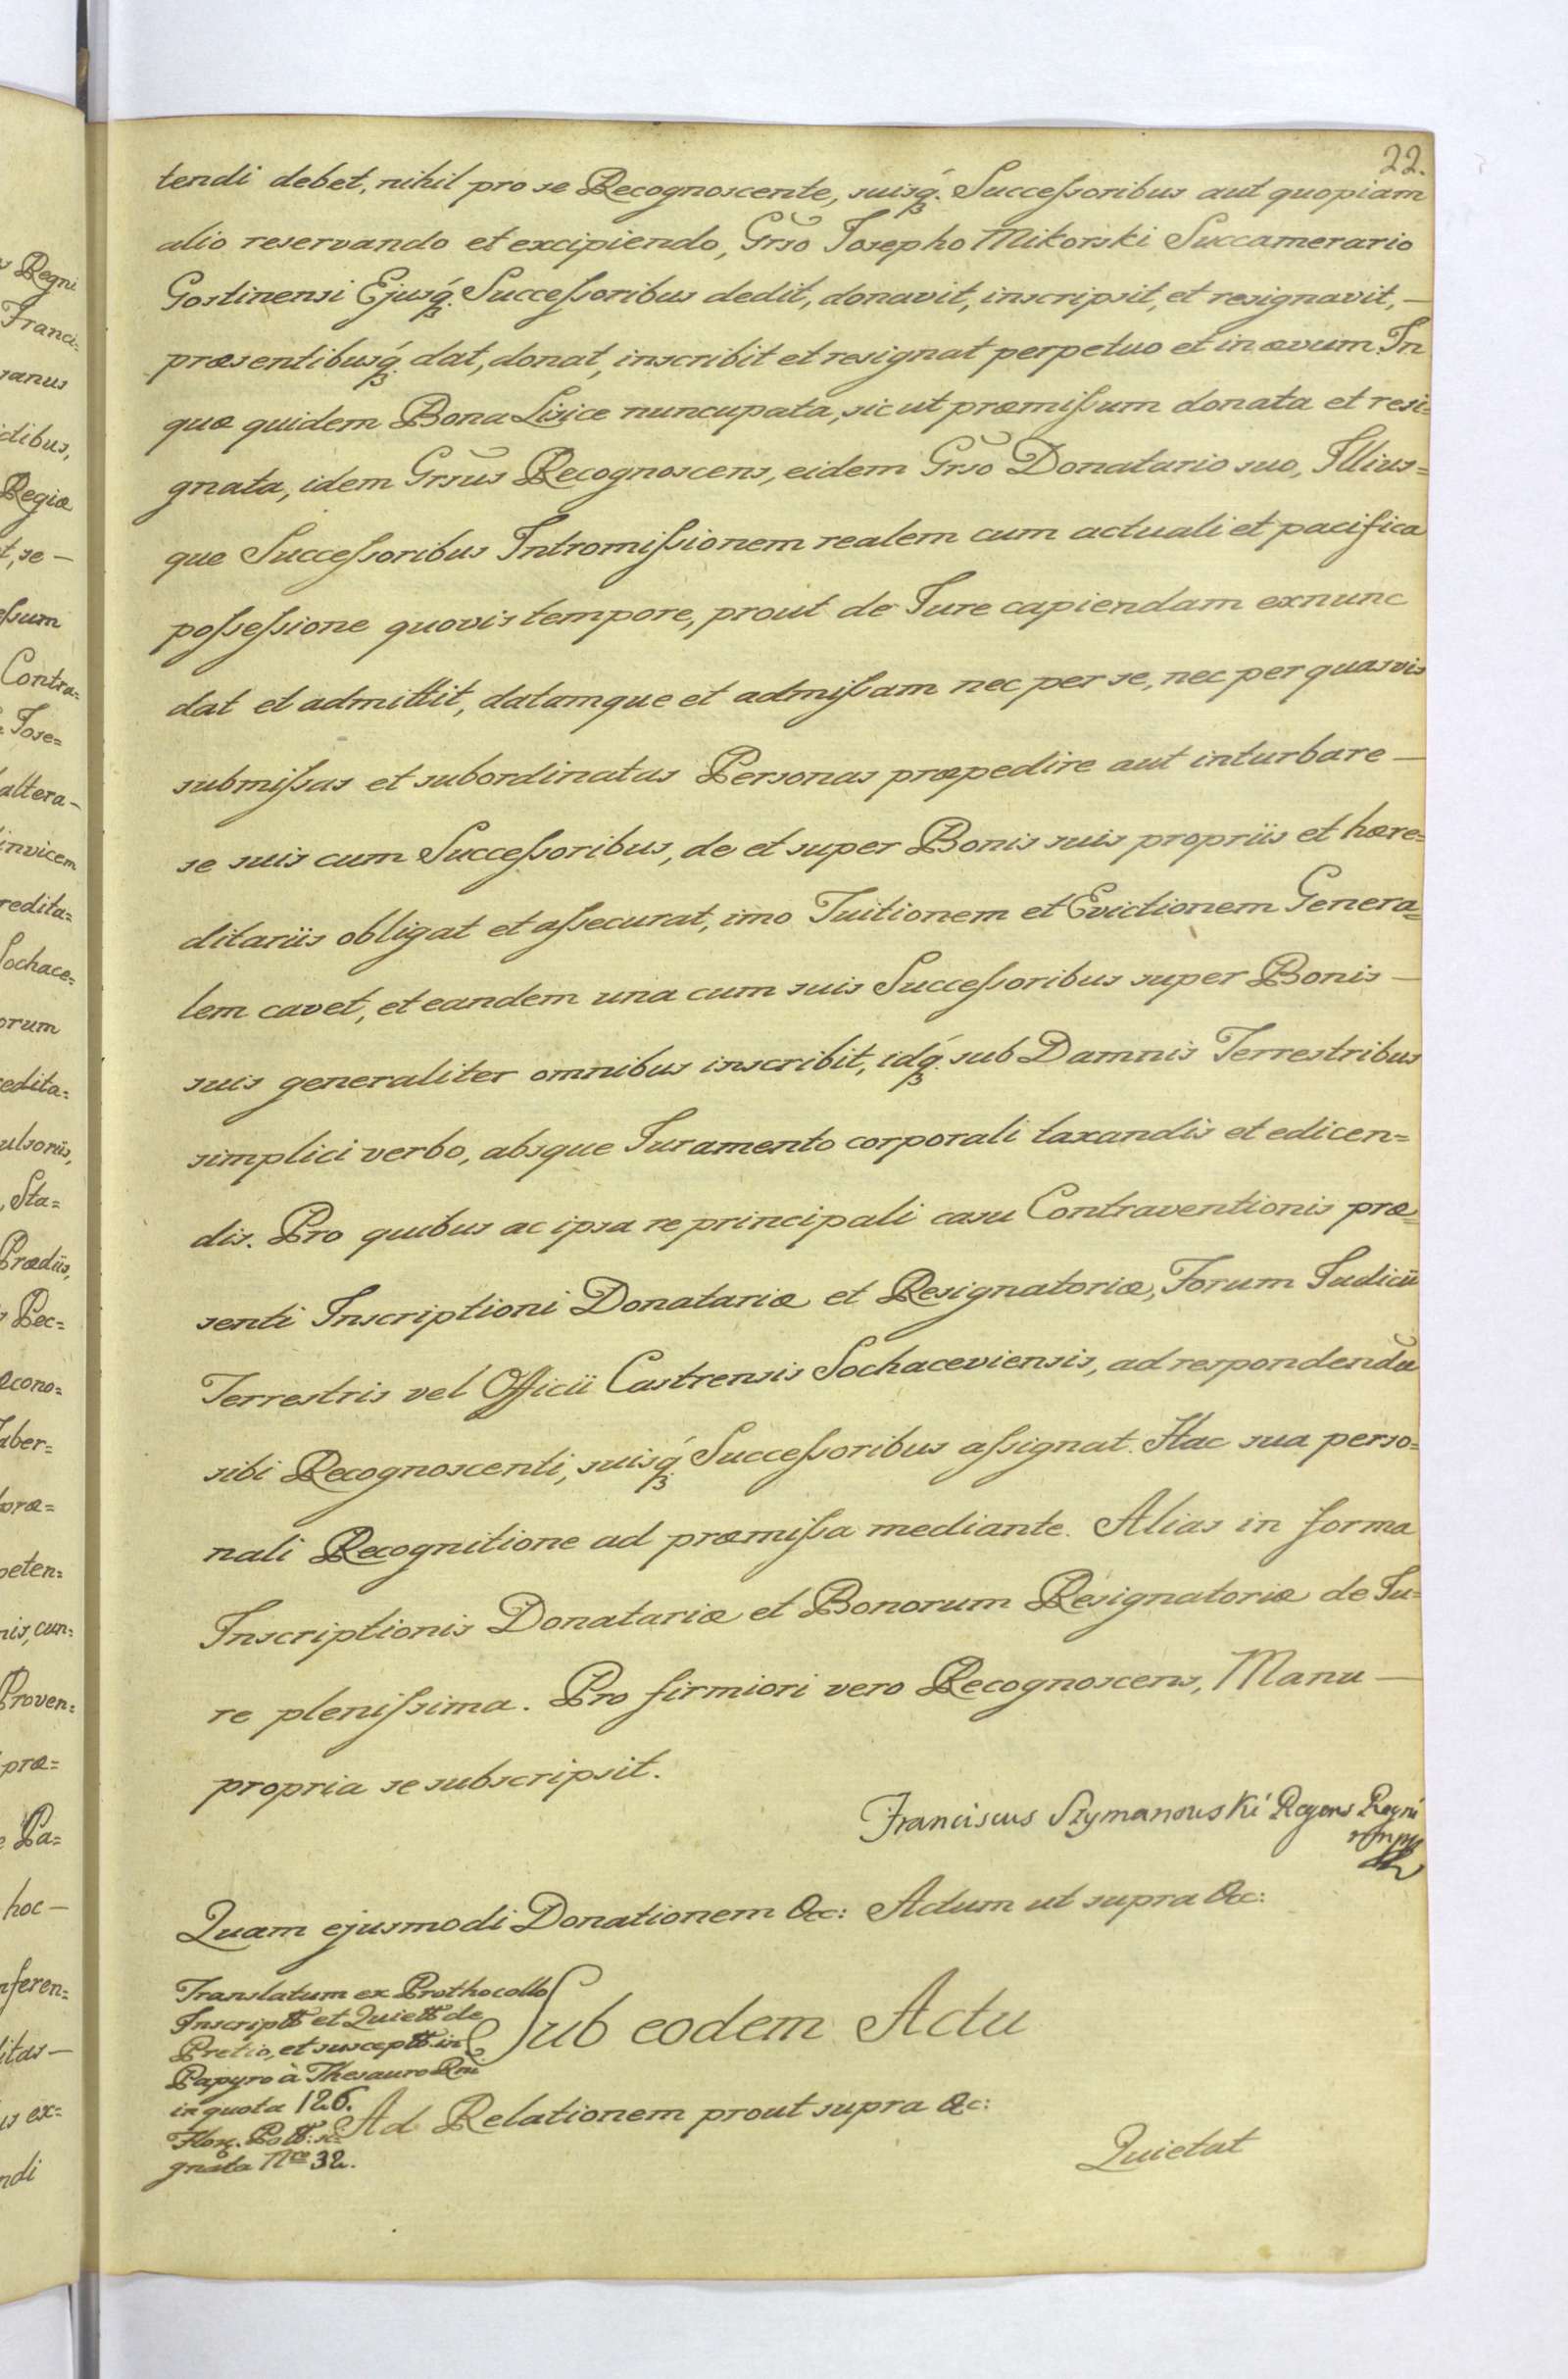 22.
tendi debet, nihil pro se Recognoscente, suisq́ꝫ. Successoribus aut quopiam
alio reservando et excipiendo, Grso Josepho Mikorski Succamerario
Gostinensi Ejusq́ꝫ. Successoribus dedit, donavit, inscripsit, et resignavit, —
præsentibusq́ꝫ. dat, donat, inscribit et resignat perpetuo et in ævum. In
quæ quidem Bona Lisice nuncupata, sic ut præmissum donata et resi=
gnata, idem Grsus Recognoscens, eidem Grso Donatario suo, Illius=
que Successoribus Intromissionem realem cum actuali et pacifica
possessione quovis tempore, prout de Jure capiendam exnunc
dat et admittit, datamque et admissam nec per se, nec per quasvis
submissas et subordinatas Personas præpedire aut inturbare —
se suis cum Successoribus, de et super Bonis suis propriis et hære=
ditariis obligat et assecurat, imo Tuitionem et Evictionem Genera=
lem cavet, et eandem una cum suis Successoribus super Bonis —
suis generaliter omnibus inscribit, idq́ꝫ. sub Damnis Terrestribus
simplici verbo, absque Juramento corporali taxandis et edicen=
dis. Pro quibus ac ipsa re principali casu Contraventionis præ=
senti Inscriptioni Donatariæ et Resignatoriæ, Forum Judicii
Terrestris vel Officii Castrensis Sochaceviensis, ad respondendũ
sibi Recognoscenti, suisq́ꝫ Successoribus assignat. Hac sua perso=
nali Recognitione ad præmissa mediante. Alias in forma
Inscriptionis Donatariæ et Bonorum Resignatoriæ de Ju=
re plenissima. Pro firmiori vero Recognoscens, Manu —
propria se subscripsit.
Franciscus Szymanouski Regens Regni
mpp
Quam ejusmodi Donationem &c: Actum ut supra &c:
Translatum ex Prothocollo
Inscriptt et Quiett de
Pretio, et susceptt in
Papyro à Thesauro Rni
in quota 126.
Flor. Poll: si=
gnata Nro 32.
Sub eodem Actu
Ad Relationem prout supra &c:
Quietat